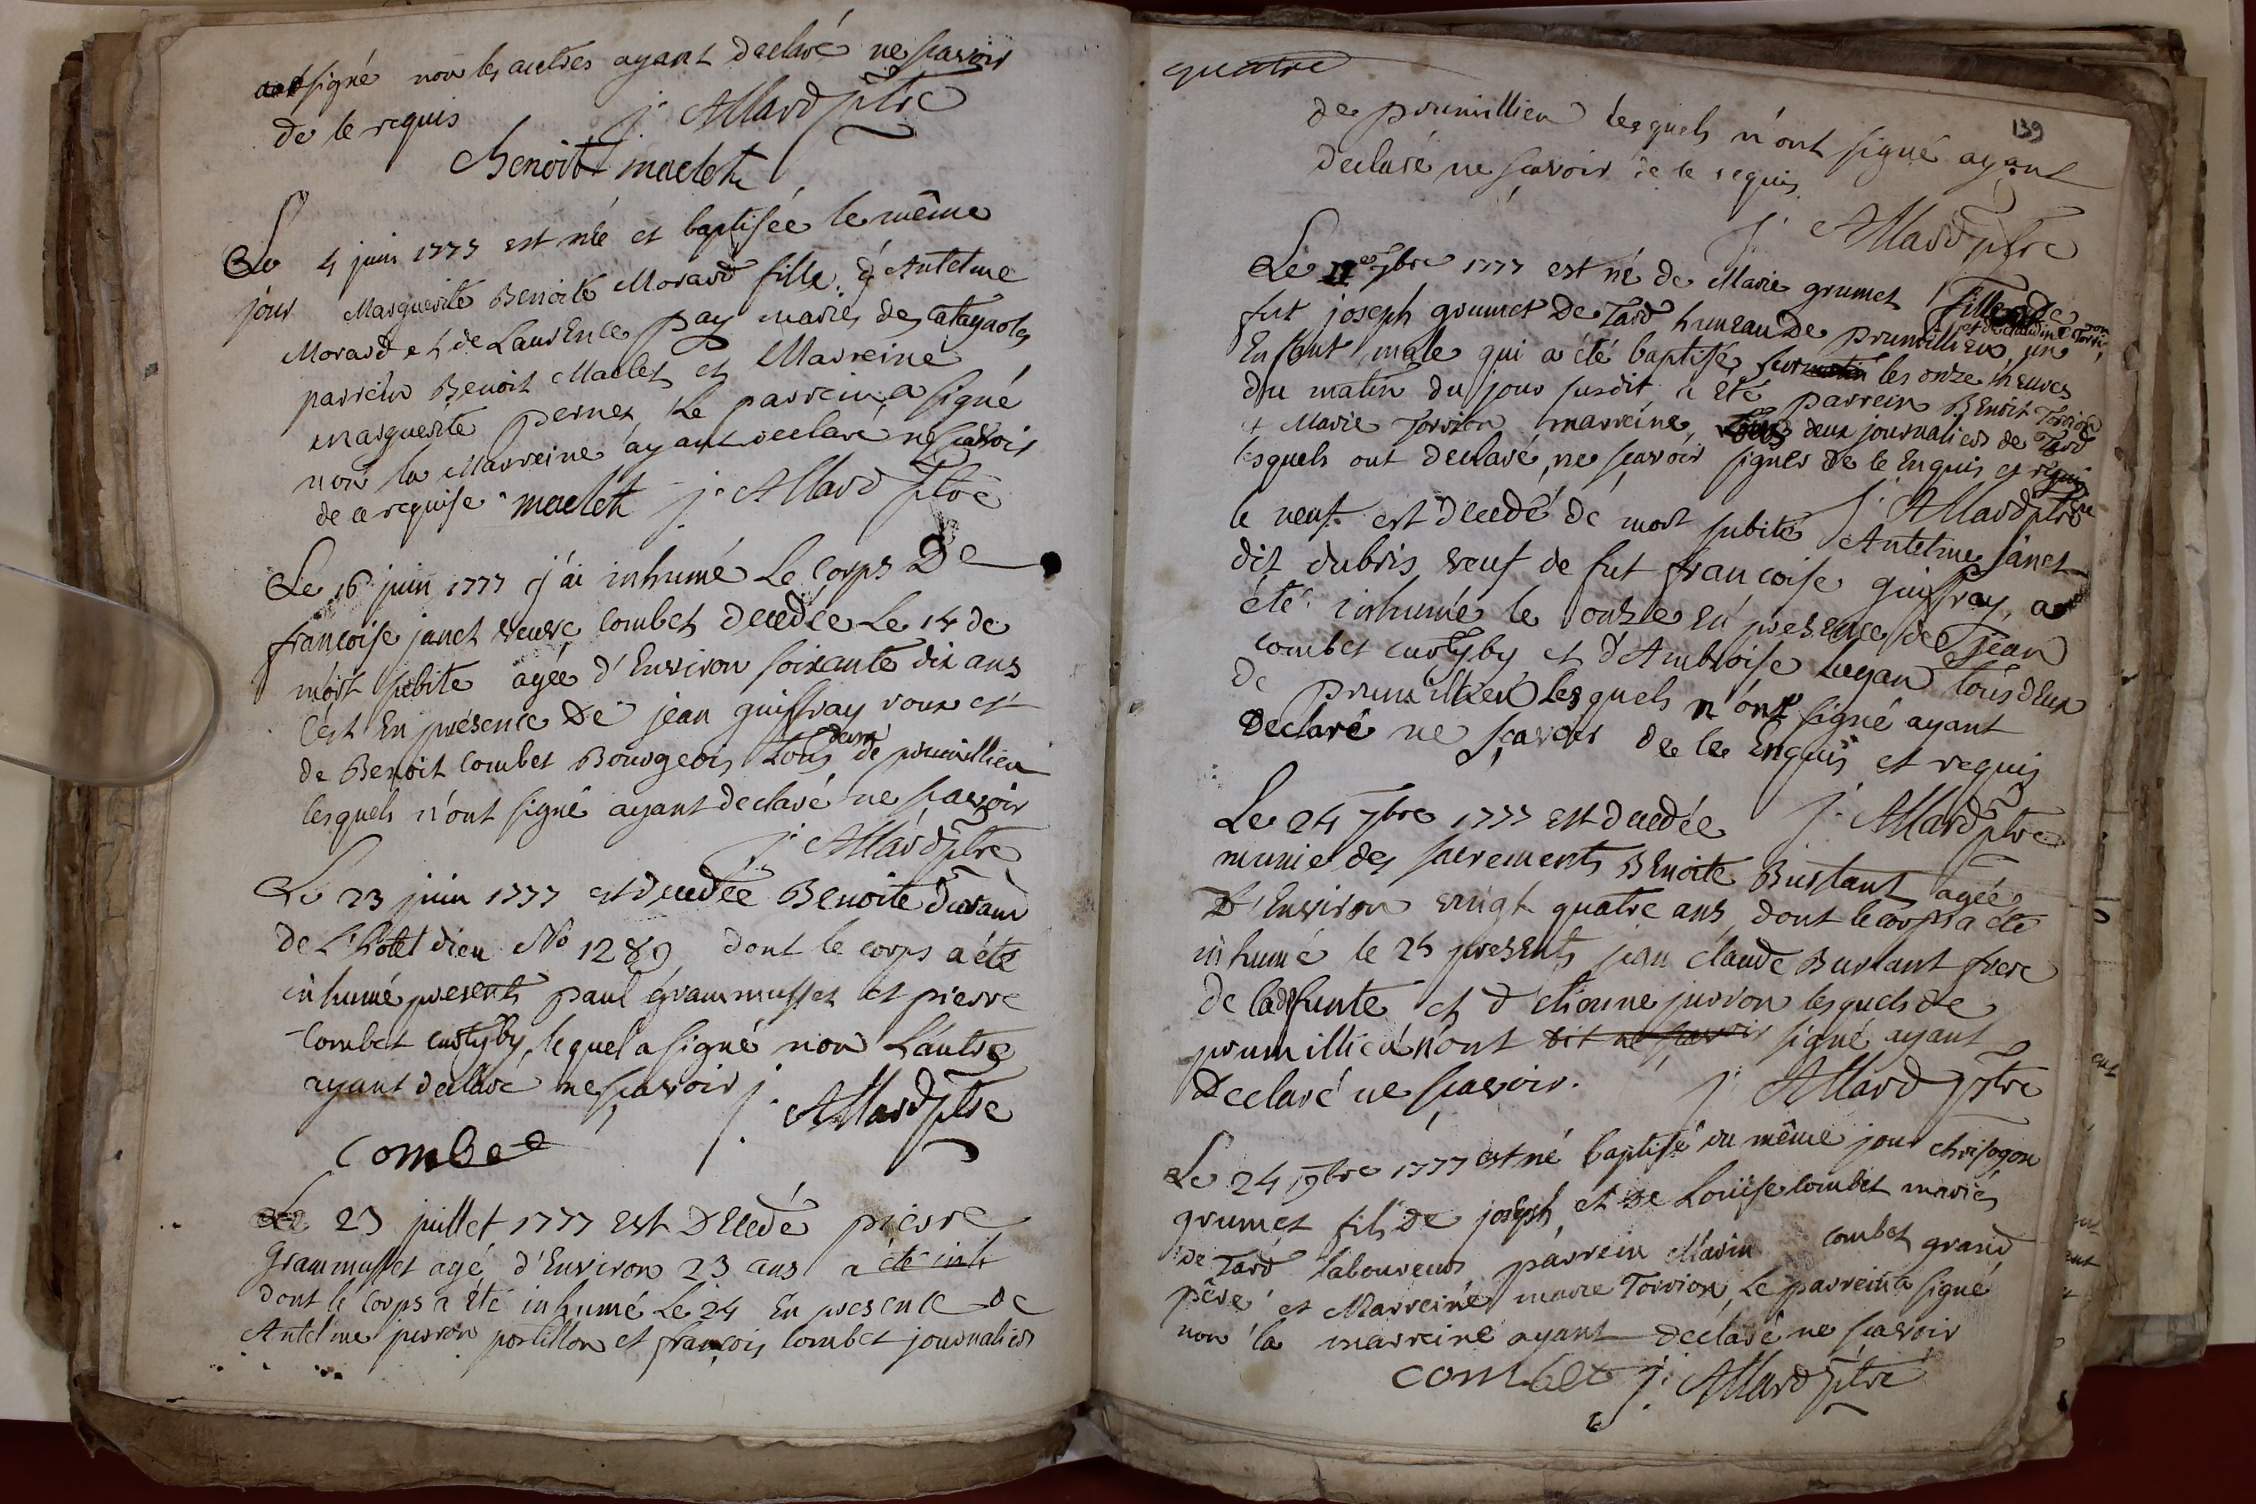 signé non les autres ayant declaré ne scavoir
de le requis
j. Allard ptre
Benoit maclet
Le 4 juin 1777 est née et baptisée le même
jour Marguerite Benoite Morard fille d'Antelme
Morard et de Laurence pay mariés des Catagnoles
parrein Benoit Maclet et Marreine
marguerite pernet Le parrein a signé
non la Marreine ayant declaré ne scavoir
de ce requise maclet j. Allard ptre
Le 16 juin 1777 j'ai inhumé Le Corps De
françoise janet veuve Combet Decedée Le 14 de
mort subite agée d'Environ soixante dix ans
C'est En présence De jean guiffray roux et
de Benoit Combet Bourgeois tous deux de prumillieu
lesquels n'ont signé ayant declaré ne scavoir
j. Allard ptre
Le 23 juin 1777 est decedée Benoite Durand
de L'hotel dieu No 1289 dont le corps a été
inhumé presents paul grammusset et pierre
Combet curtyby, lequel a signé non L'autre
ayant declaré ne scavoir j. Allard ptre
Combet
Le 23 juillet 1777 est Decedé pierre
Grammusset agé d'Environ 23 ans a été inh
dont le Corps a été inhumé Le 24 En presence de
Antelme juvron postillon et françois Combet journalier
quatre
139
de prumillieu lesquels n'ont signé ayant
declaré ne scavoir de le requis
j. Allard ptre
Le 7bre 1777 est né de Marie grumet fille de
fut joseph grumet De Tard hameau De prumillieu et de claudine Torrion, un
Enfant male qui a été baptisé sur les onze heures
du matin du jour susdit, a été parrein Benoit Torrion
et Marie Torrion marreine, deux journaliers de Tard
lesquels ont declaré ne scavoir signer de le Enquis et requis
j. Allard ptre
le neuf est decedé de mort subite Antelme janet
dit dubris veuf de fut françoise guiffray, a
été inhumé le onze En presence de jean
Combet curtyby et d'Ambroise Lugan tous deux
de prumillieu lesquels n'ont signé ayant
Declaré ne scavoir de le Enquis et requis
j. Allard ptre
Le 24 7bre 1777 est decedée
munie des sacrements Benoite Burtant agée
D'Environ vingt quatre ans dont le corps a été
inhumé le 25 presents jean claude Burtant frere
de la defunte et d'etienne juvron lesquels de
prumillieu n'ont dit ne scavoir signé ayant
Declaré ne scavoir. j. Allard ptre
Le 24 9bre 1777 est né baptisé du même jour chrisogon
grumet fils de joseph et de Louise Combet mariés
de Tard laboureurs parrein Marin Combet grand
père et Marreine marie Torrion, Le parrein a signé
non la marreine ayant declaré ne scavoir
combet j. Allard ptre